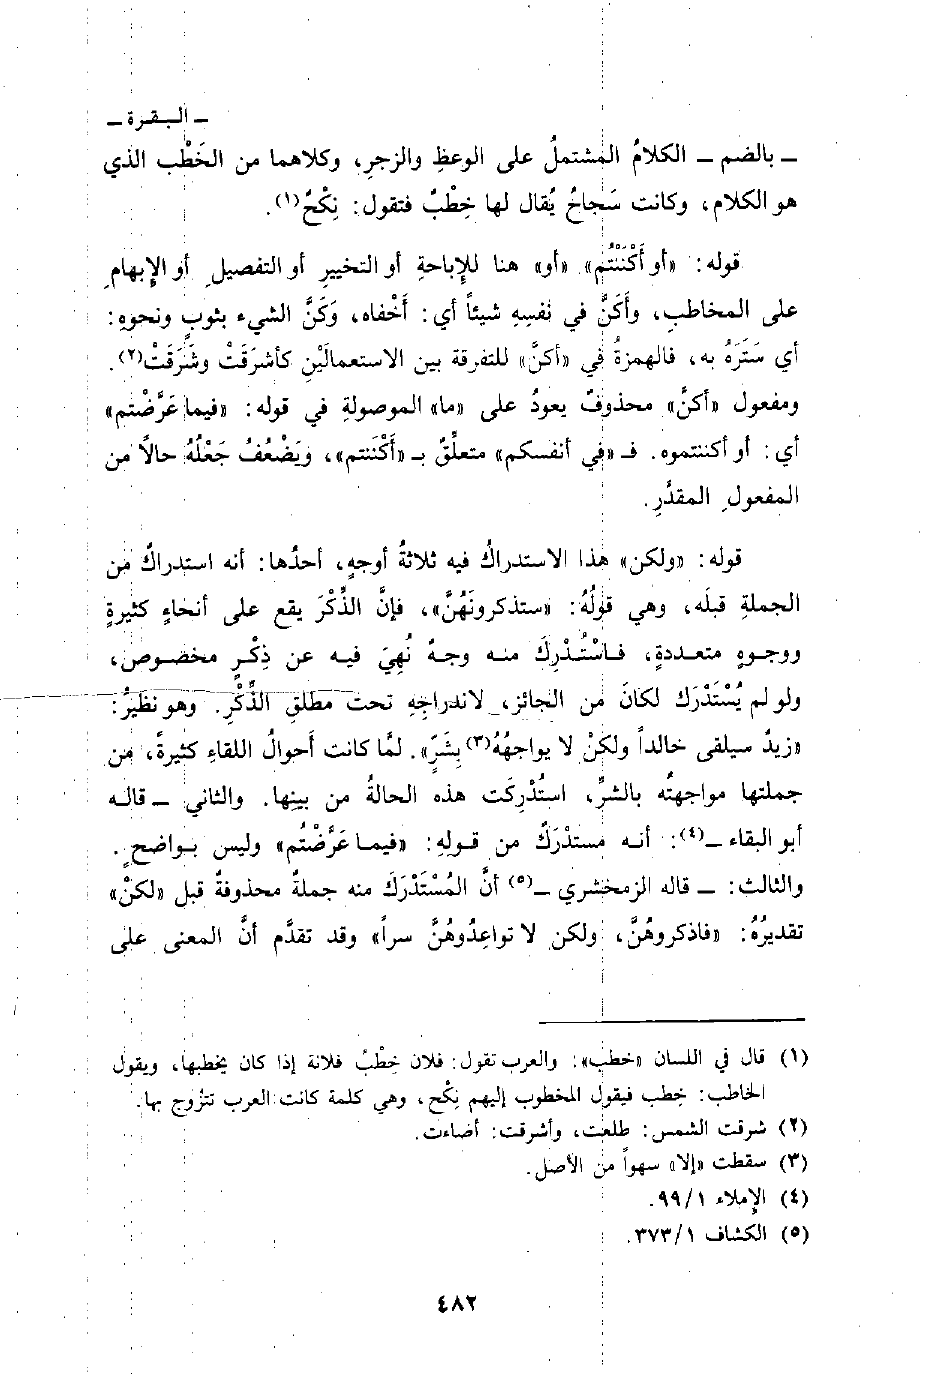 ــ البقرة ــ
ــ بالضم ــ الكلامُ المشتملُ على الوعظِ والزجرِ، وكلاهما من الخَطْب الذي
هو الكلام، وكانت سَجاحُ يُقال لها خِطْبٌ فتقول: نِكْحٌ(١).
قوله: «أو أَكْنَنْتُم» «أو» هنا للإِباحةِ أو التخييرِ أو التفصيلِ أو الإِبهامِ
على المخاطبِ، وأَكَنَّ في نفسِهِ شيئاً أي: أَخْفاه، وَكَنَّ الشيء بثوبٍ ونحوِهِ:
أي سَتَرَهُ به، فالهمزةُ في «أكنَّ» للتفرقة بين الاستعمالَيْن كأشرَقَتْ وشَرَقَتْ(٢).
ومفعول «أكنَّ» محذوفٌ يعودُ على «ما» الموصولةِ في قوله: «فيما عَرَّضْتم»
أي: أو أكننتموه. فـ «في أنفسكم» متعلِّقٌ بـ «أَكْنَنتم»، ويَضْعُفُ جَعْلُهُ حالاً من
المفعولِ المقدَّرِ.
قوله: «ولكن» هذا الاستدراكُ فيه ثلاثةُ أوجهٍ، أحدُها: أنه استدراكٌ من
الجملةِ قبلَه، وهي قولُهُ: «ستذكرونَهُنَّ»، فإنَّ الذِّكْرَ يقع على أنحاءٍ كثيرةٍ
ووجوهٍ متعددةٍ، فاسْتُدْرِكَ منه وجهٌ نُهِيَ فيه عن ذِكْرٍ مخصوص،
ولو لم يُسْتَدْرَك لكانَ من الجائز، لاندراجِهِ تحت مطلقِ الذِّكْرِ. وهو نظيرُ:
«زيدٌ سيلقى خالداً ولكنْ لا يواجهُهُ(٣) بِشَرّ». لمَّا كانت أحوالُ اللقاءِ كثيرةً، من
جملتها مواجهتُه بالشرِّ، استُدْرِكَت هذه الحالةُ من بينِها. والثاني ــ قاله
أبو البقاء ــ(٤): أنه مستدْرَكٌ من قولِهِ: «فيما عَرَّضْتُم» وليس بواضحٍ.
والثالث: ــ قاله الزمخشري ــ(٥) أنَّ المُسْتَدْرَكَ منه جملةٌ محذوفةٌ قبل «لكنْ»
تقديرُهُ: «فاذكروهُنَّ، ولكن لا تواعِدُوهُنَّ سراً» وقد تقدَّم أنَّ المعنى على
(١) قال في اللسان «خطب»: والعرب تقول: فلان خِطْبُ فلانة إذا كان يخطبها، ويقول
الخاطب: خِطب فيقول المخطوب إليهم نِكْح، وهي كلمة كانت العرب تتزوج بها.
(٢) شرقت الشمس: طلعت، وأشرقت: أضاءت.
(٣) سقطت «إلا» سهواً من الأصل.
(٤) الإملاء ١/‏٩٩.
(٥) الكشاف ١/‏٣٧٣.
٤٨٢